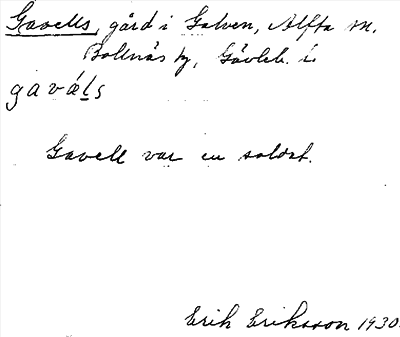 Gavells, gård i Galven, Alfta sn.
Bollnäs kg, Gävleb. l.
gaváls
Gavell var en soldat.
Erik Eriksson 1930.